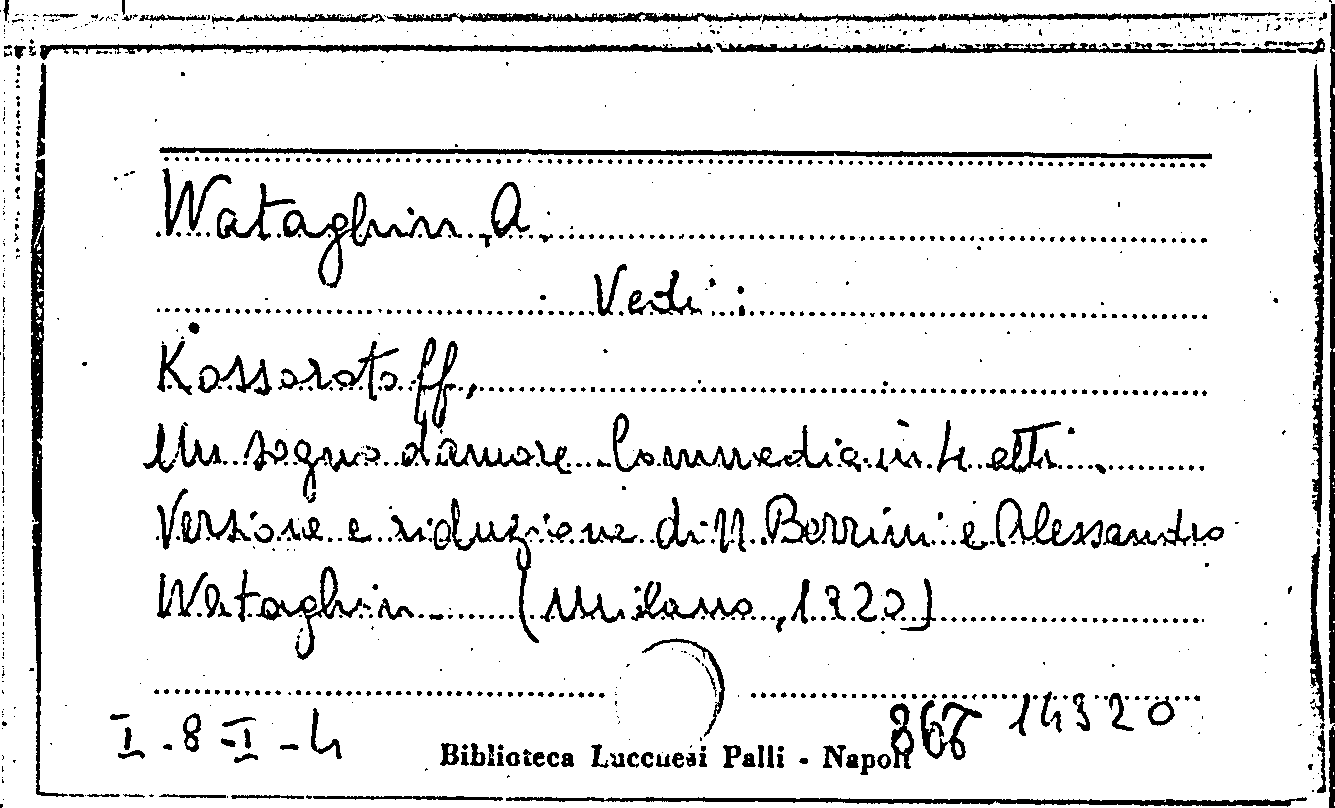 Wataghin, A.
Vedi:
Kossorotoff,
Un sogno d'amore. Commedia in 4 atti.
Versione e riduzione di N. Berrini e Alessandro
Wataghin (Milano, 1920)
I-8-I-4
14320
Biblioteca Lucchesi Palli - Napoli